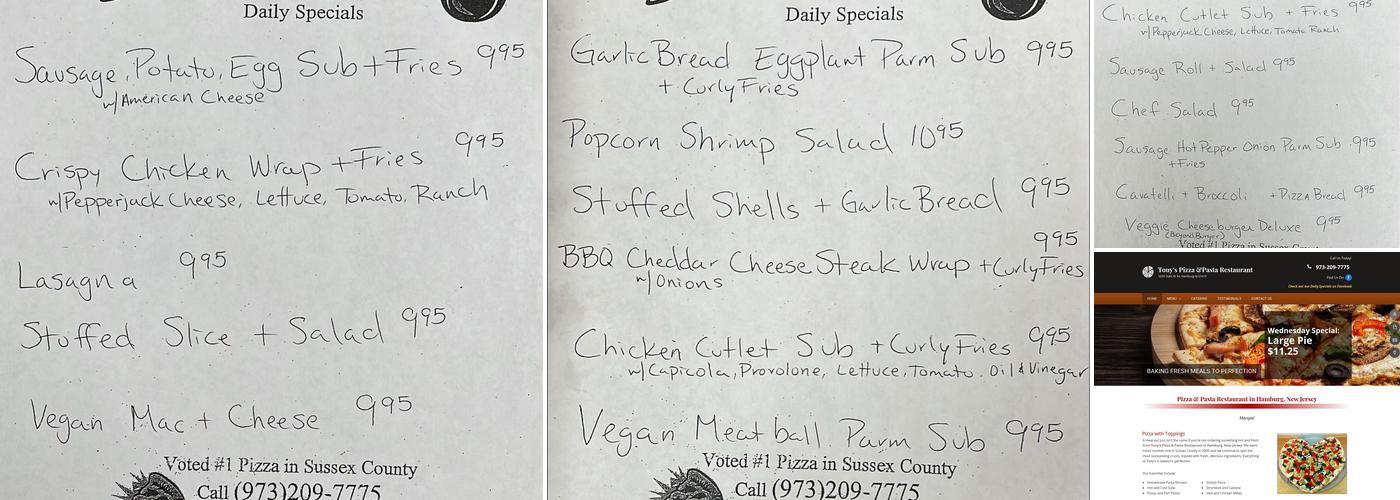 Daily Specials
Sausage, Potato, Egg Sub + Fries 9.95
w/American Cheese
Crispy Chicken Wrap + Fries 9.95
w/Pepperjack Cheese, Lettuce, Tomato, Ranch
Lasagna 9.95
Stuffed Slice + Salad 9.95
Vegan Mac + Cheese 9.95
Voted #1 Pizza in Sussex County
Call (973)209-7775
Daily Specials
Garlic Bread Eggplant Parm Sub 9.95
+ Curly Fries
Popcorn Shrimp Salad 10.95
Stuffed Shells + Garlic Bread 9.95
BBQ Cheddar Cheese Steak Wrap + Curly Fries 9.95
w/Onions
Chicken Cutlet Sub + Curly Fries 9.95
w/Capicola, Provolone, Lettuce, Tomato. Oil & Vinegar
Vegan Meatball Parm Sub 9.95
Voted #1 Pizza in Sussex County
Call (973)209-7775
Chicken Cutlet Sub + Fries 9.95
w/Pepperjack Cheese, Lettuce, Tomato Ranch
Sausage Roll + Salad 9.95
Chef Salad 9.95
Sausage Hot Pepper Onion Parm Sub 9.95
+Fries
Cavatelli + Broccoli + Pizza Bread 9.95
Veggie Cheeseburger Deluxe 9.95
(Beyond Burger)
Voted #1 Pizza in Sussex
Call Us Today!
Tony's Pizza & Pasta Restaurant
973-209-7775
Find Us On:
Check out our Daily Specials on Facebook
HOME MENU CATERING TESTIMONIALS CONTACT US
Wednesday Special:
Large Pie
$11.25
BAKING FRESH MEALS TO PERFECTION
Pizza & Pasta Restaurant in Hamburg, New Jersey
Mangia!
Pizza with Toppings
Our Favorites Include:
Homemade Pasta Dinners
Hot and Cold Subs